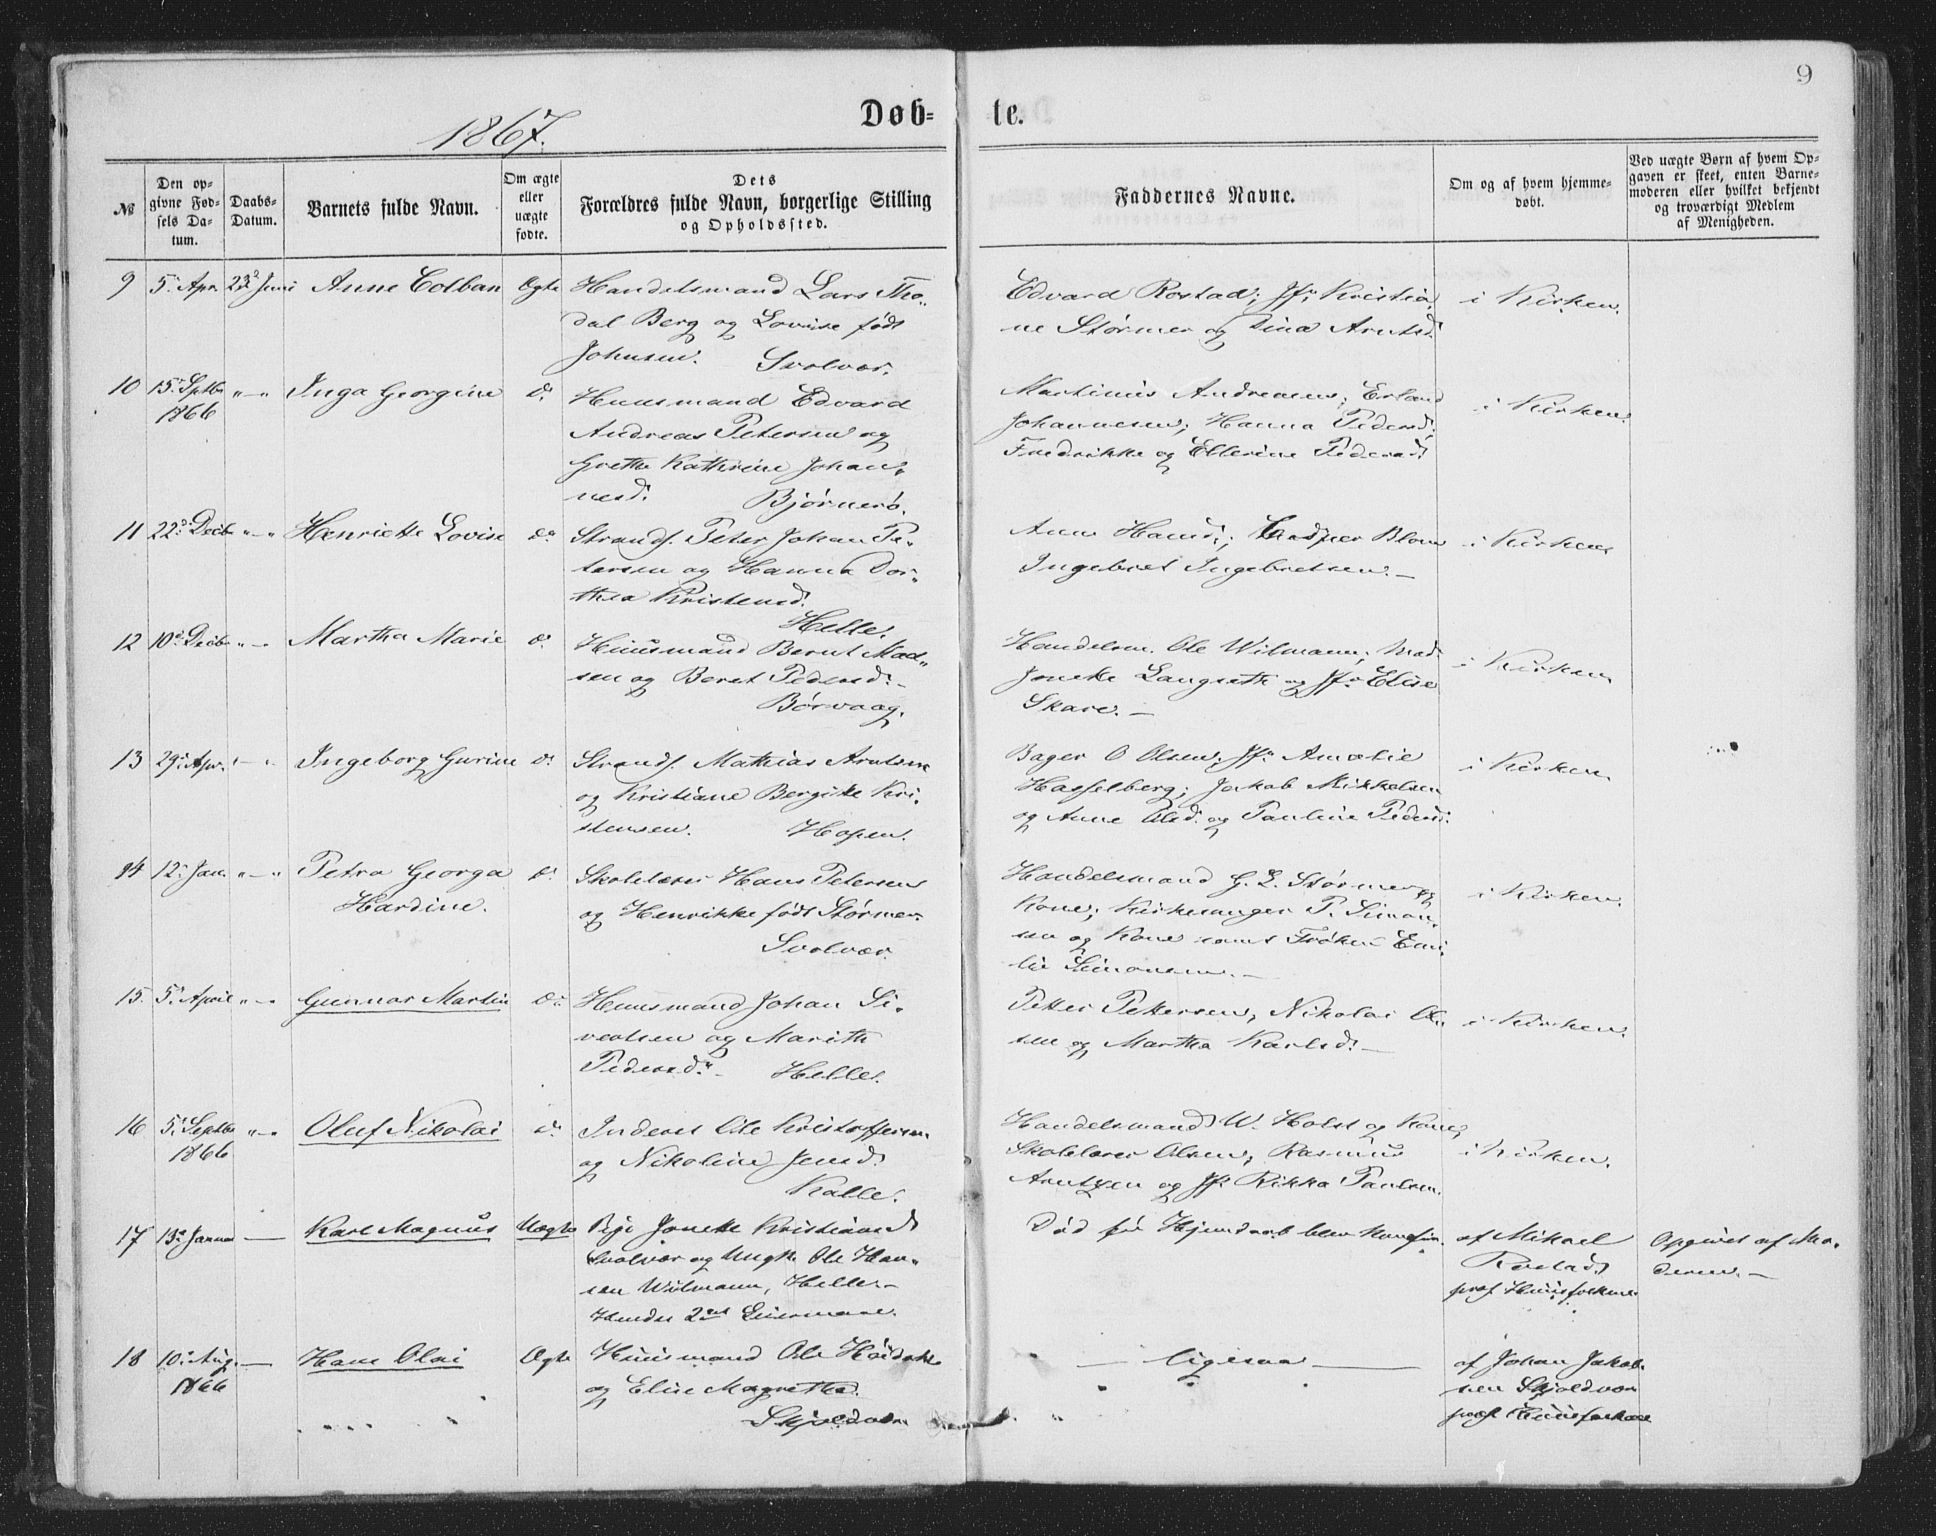 9
1867.
Døb-
te.
№
Den op-
givne Fød-
sels Da-
tum.
Daabs-
Datum.
Barnets fulde Navn.
Om ægte
eller
uægte
fødte.
Dets
Forældres fulde Navn, borgerlige Stilling
og Opholdssted.
Faddernes Navne.
Om og af hvem hjemme-
døbt.
Ved uægte Børn af hvem Op-
gaven er skeet, enten Barne-
moderen eller hvilket bekjendt
og troværdigt Medlem
af Menigheden.
9 5. Apr. 23de Juni Anne Colban Ægte
Handelsmand Lars Tho-
dal Berg og Lovise født
Johnsen. Svolvær.
Edvard Rostad; Jfr Kristia
ne Størmer og Sina Arntsd.
i Kirken.
10 15. Septbr
1866
"-" Inga Georgine do
Huusmand Edvard
Andreas Petersen og
Grethe Kathrine Johan-
nesd. Bjørnerö.
Martinus Andreasen; Erland
Johannesen; Hanna Pedersd.
Fredrikke og Ellerine Pedersd.
i Kirken.
11 22. Decb. "-" Henriette Lovise do
Strands. Peter Johan Pe-
tersen og Hanna Dor-
thea Kristensd.
Helle.
Anne Hansd.; Casper Blom
Ingebret Ingebretsen. —
i Kirken
12 10. Decb. "-" Martha Marie do
Huusmand Bernt Mad-
sen og Beret Pedersd. -
Børvaag.
Handelsm. Ole Wilmann; Mad.
Joneke Langseth og Jfr Elise
Skare. —
i Kirken
13 29. Apr. "-" Ingeborg Gurine do
Strands. Mathias Arntsen
og Kristiane Bergitte Kri-
stensen. Hopen.
Bager O Olsen; Jfr Amalie
Hasselberg; Jakob Mikkelsen
og Anne Olsd. og Pauline Pedersd.
i Kirken
14 12. Jan. "-" Petra Georga
Hardine.
do
Skolelærer Hans Petersen
og Henrikke født Størmer.
Svolvær
Handelsmand G. L. Størmer og
Kone; Kirkesanger P. Simon-
sen og Kone samt Frøken Emi-
lie Simonsen. —
i Kirken.
15. 5. April "-" Gunnar Martin do
Huusmand Johan Si-
vertsen og Marith
Pedersd. - Helle.
Petter Pettersen; Nikolai Ol-
sen og Martha Karlsd. —
i Kirken.
16 5. Septbr
1866
"-" Oluf Nikolai do
Inderst Ole Kristoffersen
og Nikoline Jensd.
Kalle.
Handelsmand W. Holst og Kone;
Skolelærer Olsen; Rasmus
Arntzen og Jfr Rikka Paulsen.
i Kirken.
17 13. Januar — Karl Magnus Uægte
Pige Joneke Kristiansd.
Svolvær og Ungk. Ole Han-
sen Wilmann, Helle. -
Hendes 2det Leiermaal.
Død før Hjemdaab blev Konfir.
af Mikael
Rostad
præs. Huusfolkene
Opgivet af Mo-
deren. —
18 10. Aug.
1866
— Hans Olai Ægte
Huusmand Ole
og Elise Magretha.
Skjoldvær
— ligesaa —
af Johan Jakob-
sen Skjoldvær
præs. Huusfolkene